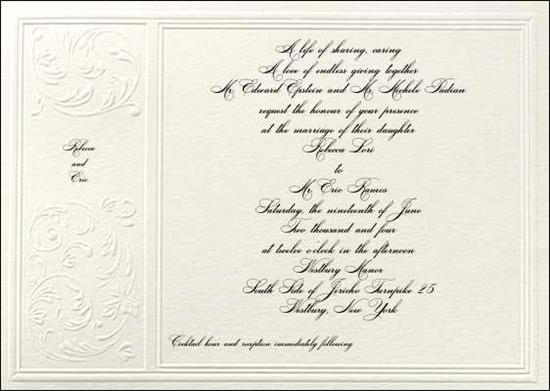 Rebecca
and
Eric
A life of sharing, caring
A love of endless giving together
Mr. Edward Epstein and Mr. Michele Padian
request the honour of your presence
at the marriage of their daughter
Rebecca Lori
to
Mr. Eric Ramos
Saturday, the nineteenth of June
Two thousand and four
at twelve o'clock in the afternoon
Westbury Manor
South Side of Jericho Turnpike 25
Westbury, New York
Cocktail hour and reception immediately following